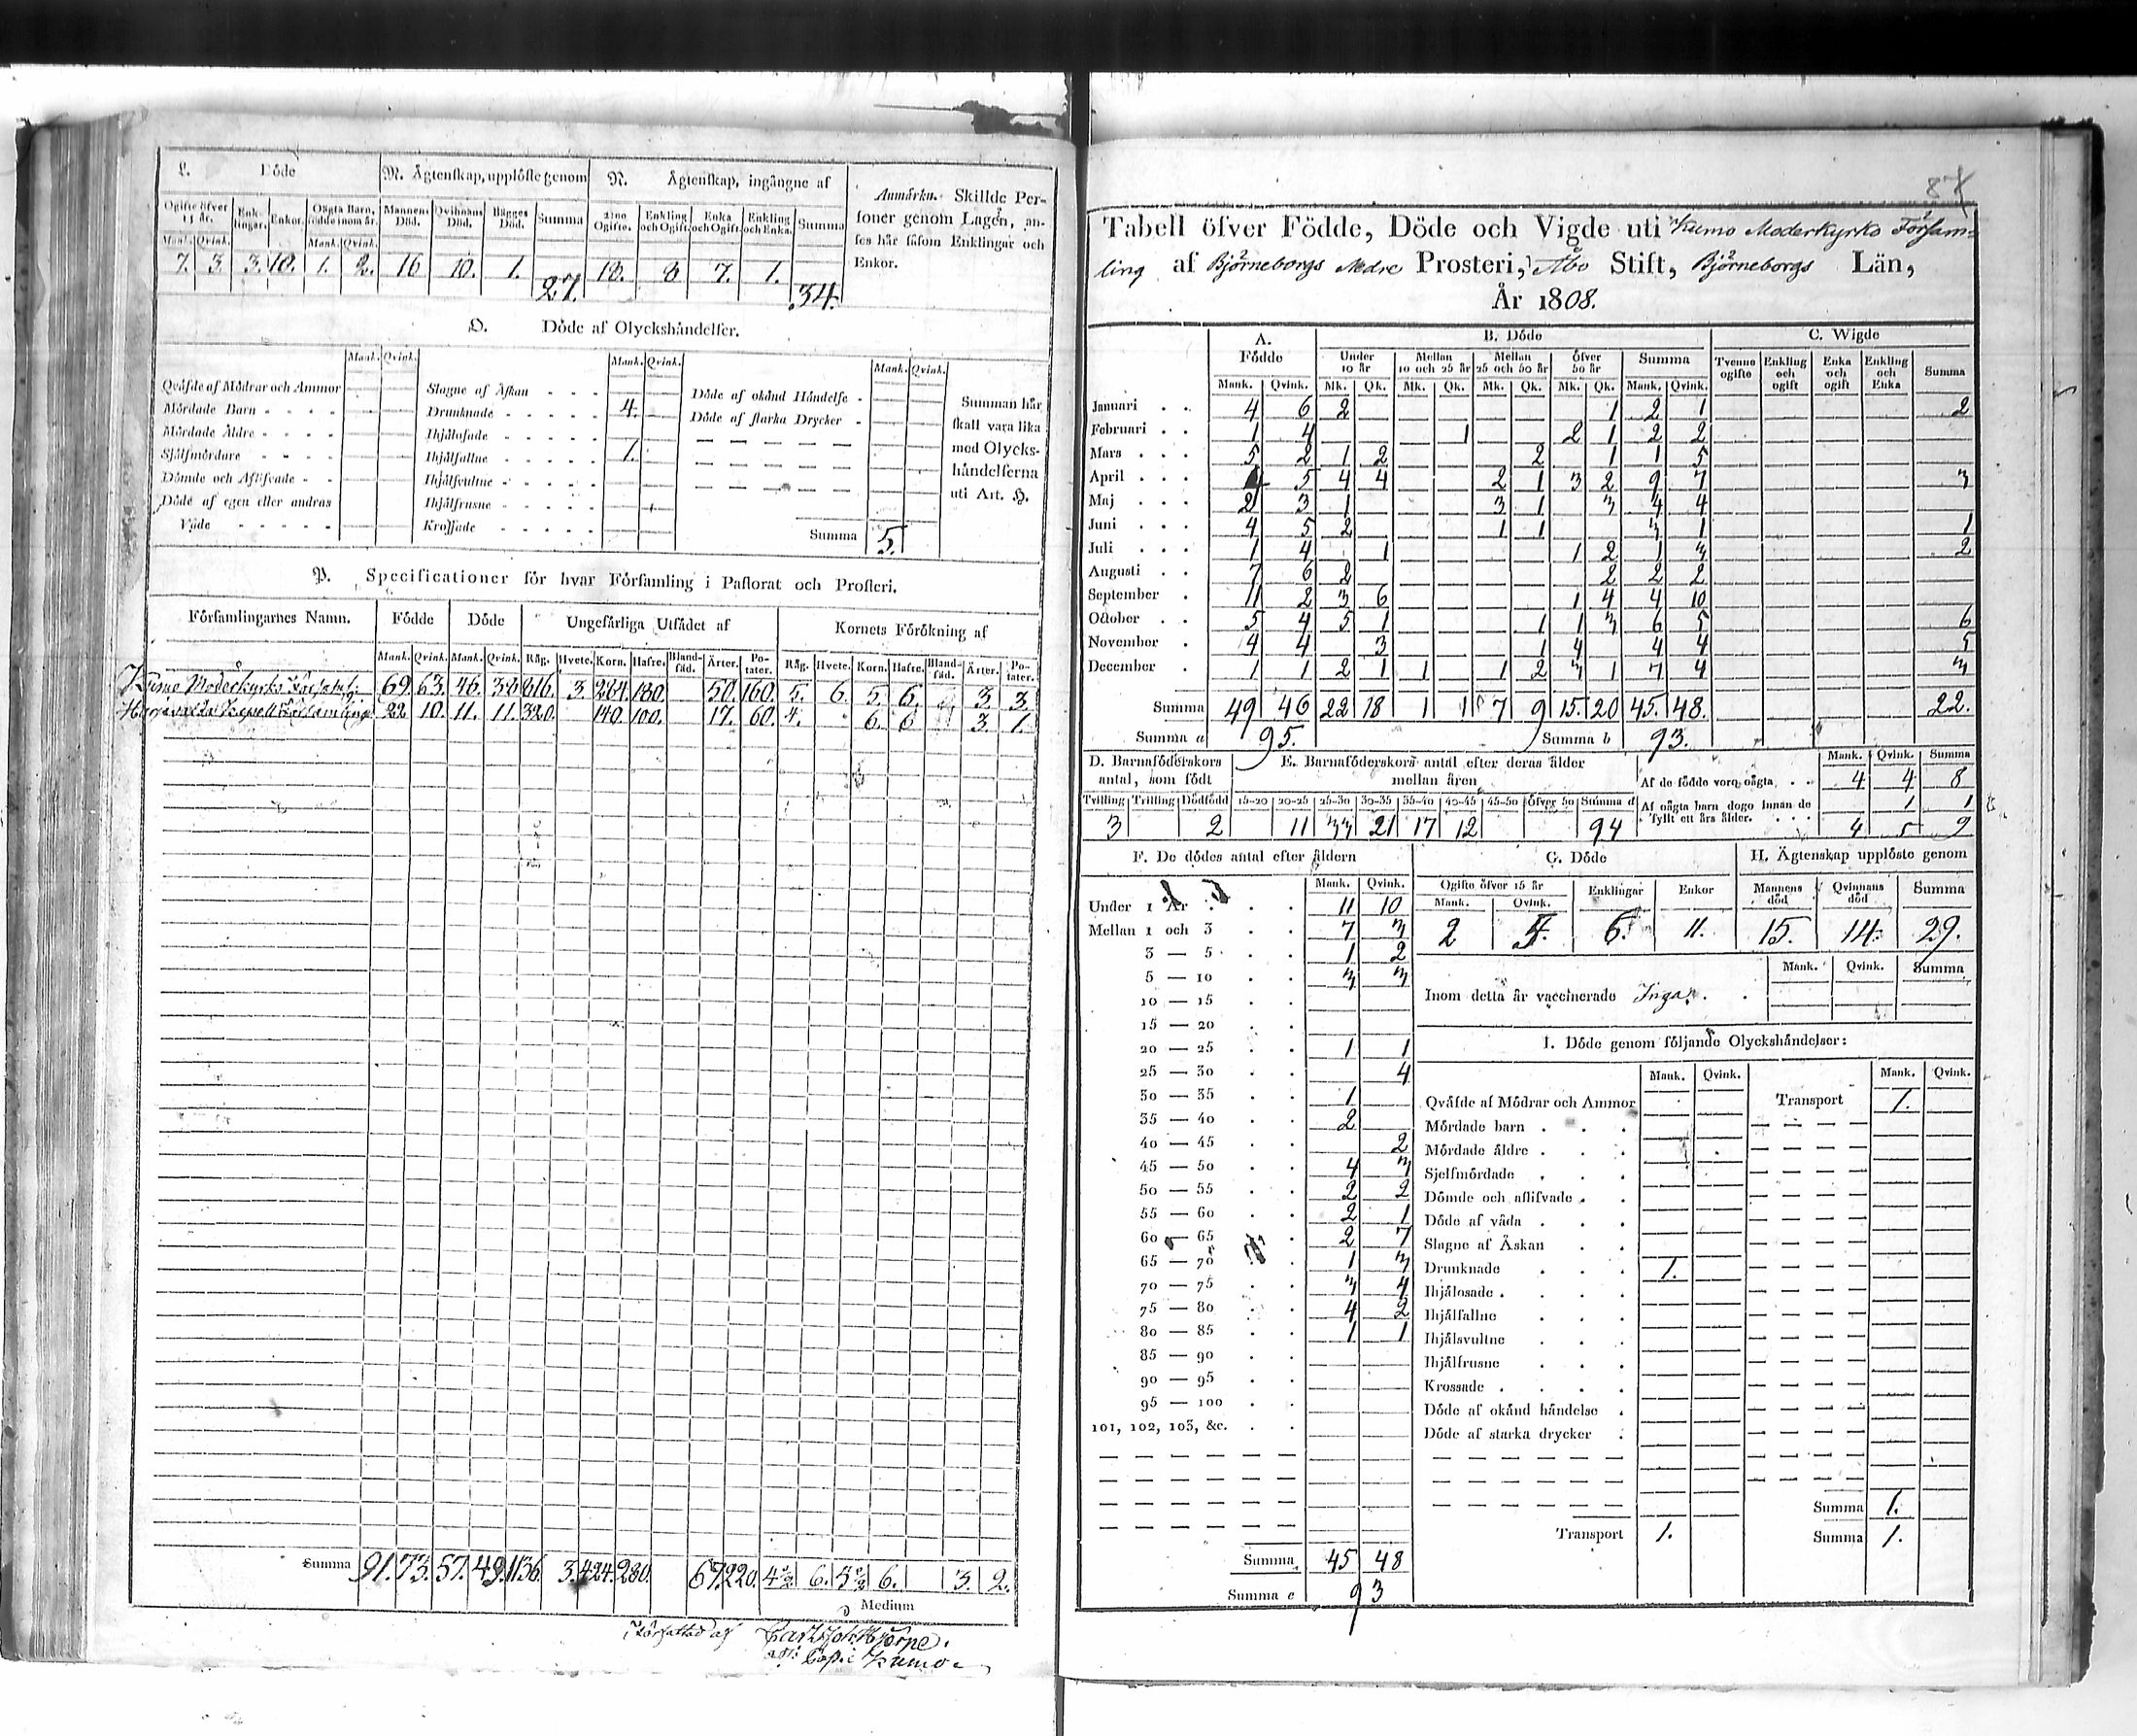 L. Döde
M. Ägtenskap, upplöste genom
N. Ägtenskap, ingångne af
Anmärkn. Skillde Per-
soner genom Lagen, an-
ses här såsom Enklingar och
Enkor.
Ogifte öfver 15 år. Enk-lingar. Enkor. Oägta Barn, födde inom år. Mannens Död. Qvinnans Död. Bägges Död. Summa 2:ne Ogifte. Enkling och Ogift. Enka och Ogift. Enkling och Enka. Summa
Mank. Qvink. Mank. Qvink.
7. 3. 3. 10. 1. 2. 16 10. 1. 27. 18. 8 7. 1. 34.
O. Döde af Olyckshändelser.
Mank. Qvink. Mank. Qvink. Mank. Qvink.
Qväfde af Mödrar och Ammor
Mördade Barn
Mördade Äldre
Självmördare
Dömde och Aflifvade
Döde af egen eller andras
Våde
Slagne af Åskan
Drunknade 4.
Ihjälosade
Ihjälfallne 1.
Ihjälsvultne
Ihjälfrusne
Krossade
Döde af okänd Händelse
Döde af starka Drycker
Summa 5.
Summan här
skall vara lika
med Olycks-
händelserna
uti Art. H.
P. Specificationer för hvar Församling i Pastorat och Prosteri.
Församlingarnes Namn. Födde Döde Ungefärliga Utsädet af Kornets Förökning af
Mank. Qvink. Mank. Qvink. Råg. Hvete. Korn. Hafre. Bland-säd. Ärter. Po-tater. Råg. Hvete. Korn. Hafre. Bland-säd. Ärter. Po-tater.
Kumo Moderkyrko 69. 63. 46. 38 816. 3. 284. 180. 50. 160. 5. 6. 5. 6. 3. 3.
Harjavalta Kapell Församling 22 10. 11. 11. 320. 140. 100. 17. 60. 4. 6. 6 3. 1.
Summa 91. 73. 57. 49. 1136. 3. 424. 280. 67. 220. 4½. 6. 5½. 6. 3. 2.
Medium
Författad af
Kumo
87
Tabell öfver Födde, Döde och Vigde uti Kumo Moderkyrko Församling
af Björneborgs Nedre Prosteri, Åbo Stift, Björneborgs Län,
År 1808.
A. Födde B. Döde C. Wigde
Under 10 år Mellan 10 och 25 år Mellan 25 och 50 år Öfver 50 år Summa Tvenne ogifte Enkling och ogift Enka och ogift Enkling och Enka Summa
Mank. Qvink. Mk. Qk. Mk. Qk. Mk. Qk. Mk. Qk. Mank. Qvink.
Januari 4 6 2 1 2 1 2
Februari 1 4 1 2 1 2 2
Mars 5 2 1 2 2 1 1 5
April 4 5 4 4 2 1 3 2 9 7 3
Maj 2 3 1 3 1 3 4 4
Juni 4 5 2 1 1 3 1 1
Juli 1 4 1 1 2 1 3 2
Augusti 7 6 2 2 2 2
September 11 2 3 6 1 4 4 10
October 5 4 5 1 1 1 3 6 5 6
November 4 4 3 1 4 4 4 5
December 1 1 2 1 1 1 2 3 1 7 4 3
Summa 49 46 22 18 1 1 7 9 15. 20 45. 48. 22.
Summa a 95. Summa b 93.
D. Barnaföderskors antal, som födt
E. Barnaföderskors antal efter deras ålder mellan åren
Mank. Qvink. Summa
Af de födde voro oägta 4 4 8
Af oägta barn dogo innan de fyllt ett års ålder. 1 1
4 5 9
Tvilling Trilling Dödfödd 15-20 20-25 25-30 30-35 35-40 40-45 45-50 Öfver 50 Summa d
3 2 11 33 21 17 12 94
F. De dödes antal efter åldern
Mank. Qvink.
Under 1 År 11 10
Mellan 1 och 3 7 3
3 — 5 1 2
5 — 10 3 3
10 — 15
15 — 20
20 — 25 1 1
25 — 30 4
30 — 35 1
35 — 40 2
40 — 45 2
45 — 50 4 3
50 — 55 2 2
55 — 60 2 1
60 — 65 2 7
65 — 70 1 3
70 — 75 3 4
75 — 80 4 2
80 — 85 1 1
85 — 90
90 — 95
95 — 100
101, 102, 103, &c.
Summa 45 48
Summa e 93
G. Döde
Ogifte öfver 15 år Enklingar Enkor
Mank. Qvink.
2 6. 11.
H. Ägtenskap upplöste genom
Mannens död Qvinnans död Summa
15. 14. 29.
Mank. Qvink. Summa
Inom detta år vaccinerade Inga.
I. Döde genom följande Olyckshändelser:
Mank. Qvink. Mank. Qvink.
Qväfde af Mödrar och Ammor
Mördade barn
Mördade äldre
Sjelfmördade
Dömde och aflifvade
Döde af våda
Slagne af Åskan
Drunknade 1.
Ihjälosade
Ihjälfallne
Ihjälsvultne
Ihjälfrusne
Krossade
Döde af okänd händelse
Döde af starka drycker
Transport 1.
Transport 1.
Summa 1.
Summa 1.